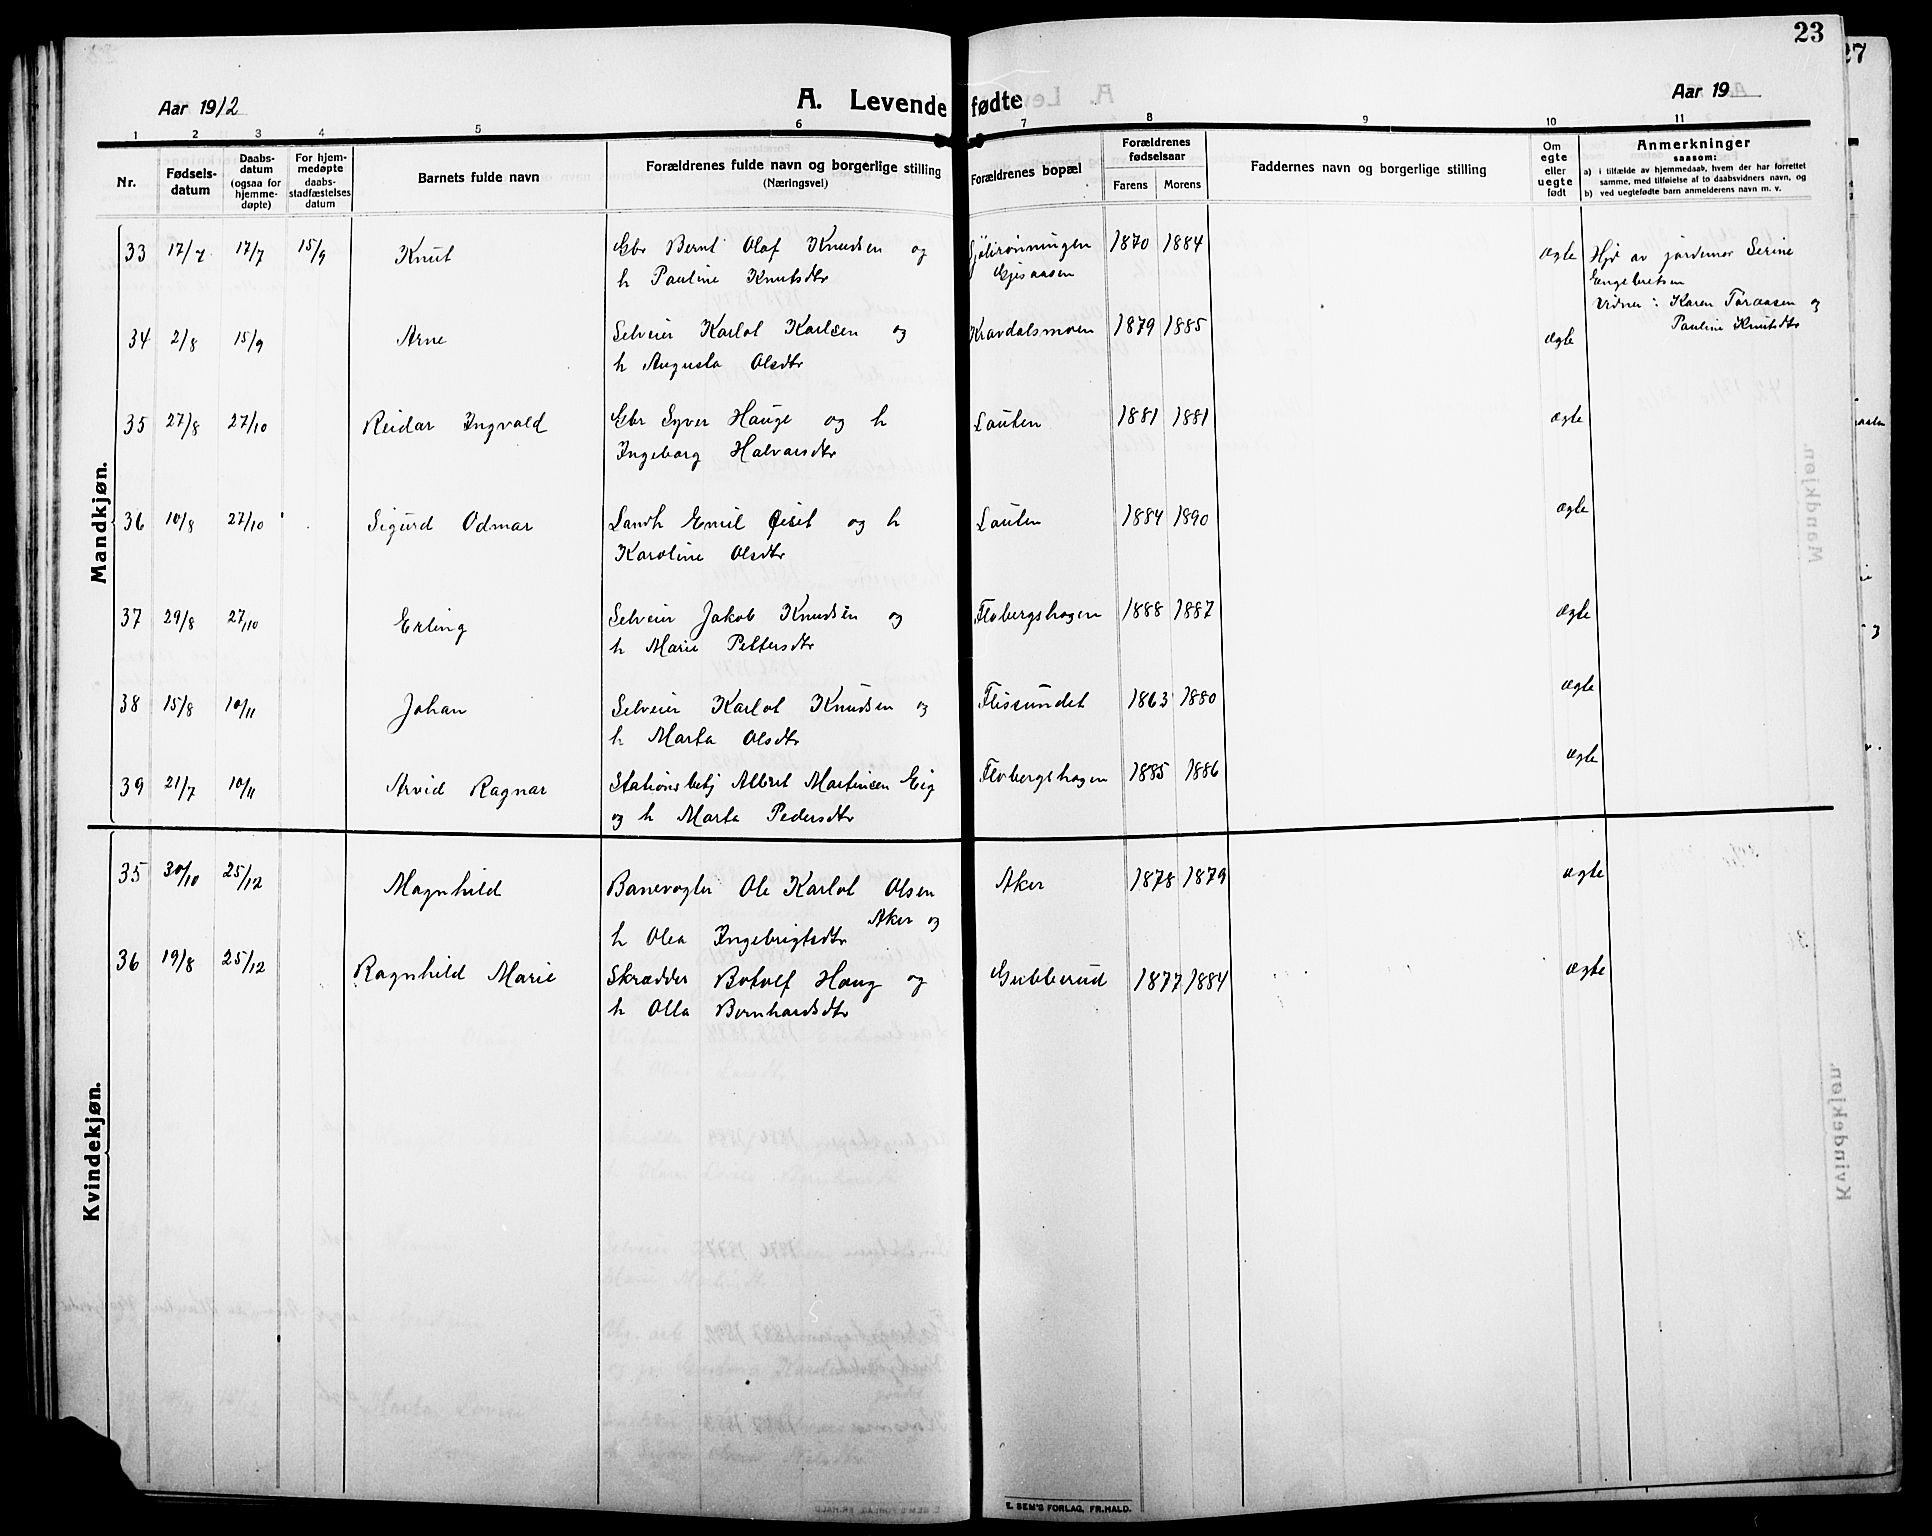 23
27
Aar 1912
A. Levende fødte
Aar 19
1 2 3 4 5 6 7 8 9 10 11
Nr.
Fødsels-
datum
Daabs-
datum
(ogsaa for
hjemme-
døpte)
For hjem-
medøpte
daabs-
stadfæstelses
datum
Barnets fulde navn
Forældrenes fulde navn og borgerlige stilling
(Næringsvei)
Forældrenes bopæl
Forældrenes
fødselsaar
Farens Morens
Faddernes navn og borgerlige stilling
Om
egte
eller
uegte
født
Anmerkninger
saasom:
a) i tilfælde av hjemmedaab, hvem der har forrettet
samme, med tilføielse af to daabsvidners navn, og
b) ved uegtefødte barn anmelderens navn m. v.
Mandkjøn.
33 17/7 17/7 15/9 Knut Gbr Bernt Olaf Knudsen og Sjølirønningen 1870 1884 ægte Hjd av jordemor Serine
h Pauline Knutsdtr Gjesaasen Engebretsen
Vidner: Karen Toraasen og
Pauline Knutsdtr
34 2/8 15/9 Arne Selveier Karlot Karlsen og Kravdalsmoen 1879 1885 ægte
h Augusta Olsdtr
35 27/8 27/10 Reidar Ingvald Gbr Syver Hauge og h Lauten 1881 1881 ægte
Ingeborg Halvorsdtr
36 10/8 27/10 Sigurd Odmar Landh Emil Qvist og h Lauten 1884 1890 ægte
Karoline Olsdtr
37 29/8 27/10 Erling Selveier Jakob Knudsen og Flobergshagen 1888 1887 ægte
h Marie Pettersdtr
38 15/8 10/11 Johan Selveier Karlot Knudsen og Flissundet 1863 1880 ægte
h Marta Olsdtr
39 21/7 10/11 Arvid Ragnar Stationsbetj Albert Martinsen Eig Flobergshagen 1885 1886 ægte
og h Marta Pedersdtr
Kvindekjøn.
35 30/10 25/12 Magnhild Banevogter Ole Karlot Olsen Aker 1878 1879 ægte
Aker og
h Olea Ingebrigtsdtr
36 19/8 25/12 Ragnhild Marie Skrædder Botolf Haug og Gubberud 1877 1884 ægte
h Olla Bernhardsdtr
E. SEM'S FORLAG, FR.HALD.